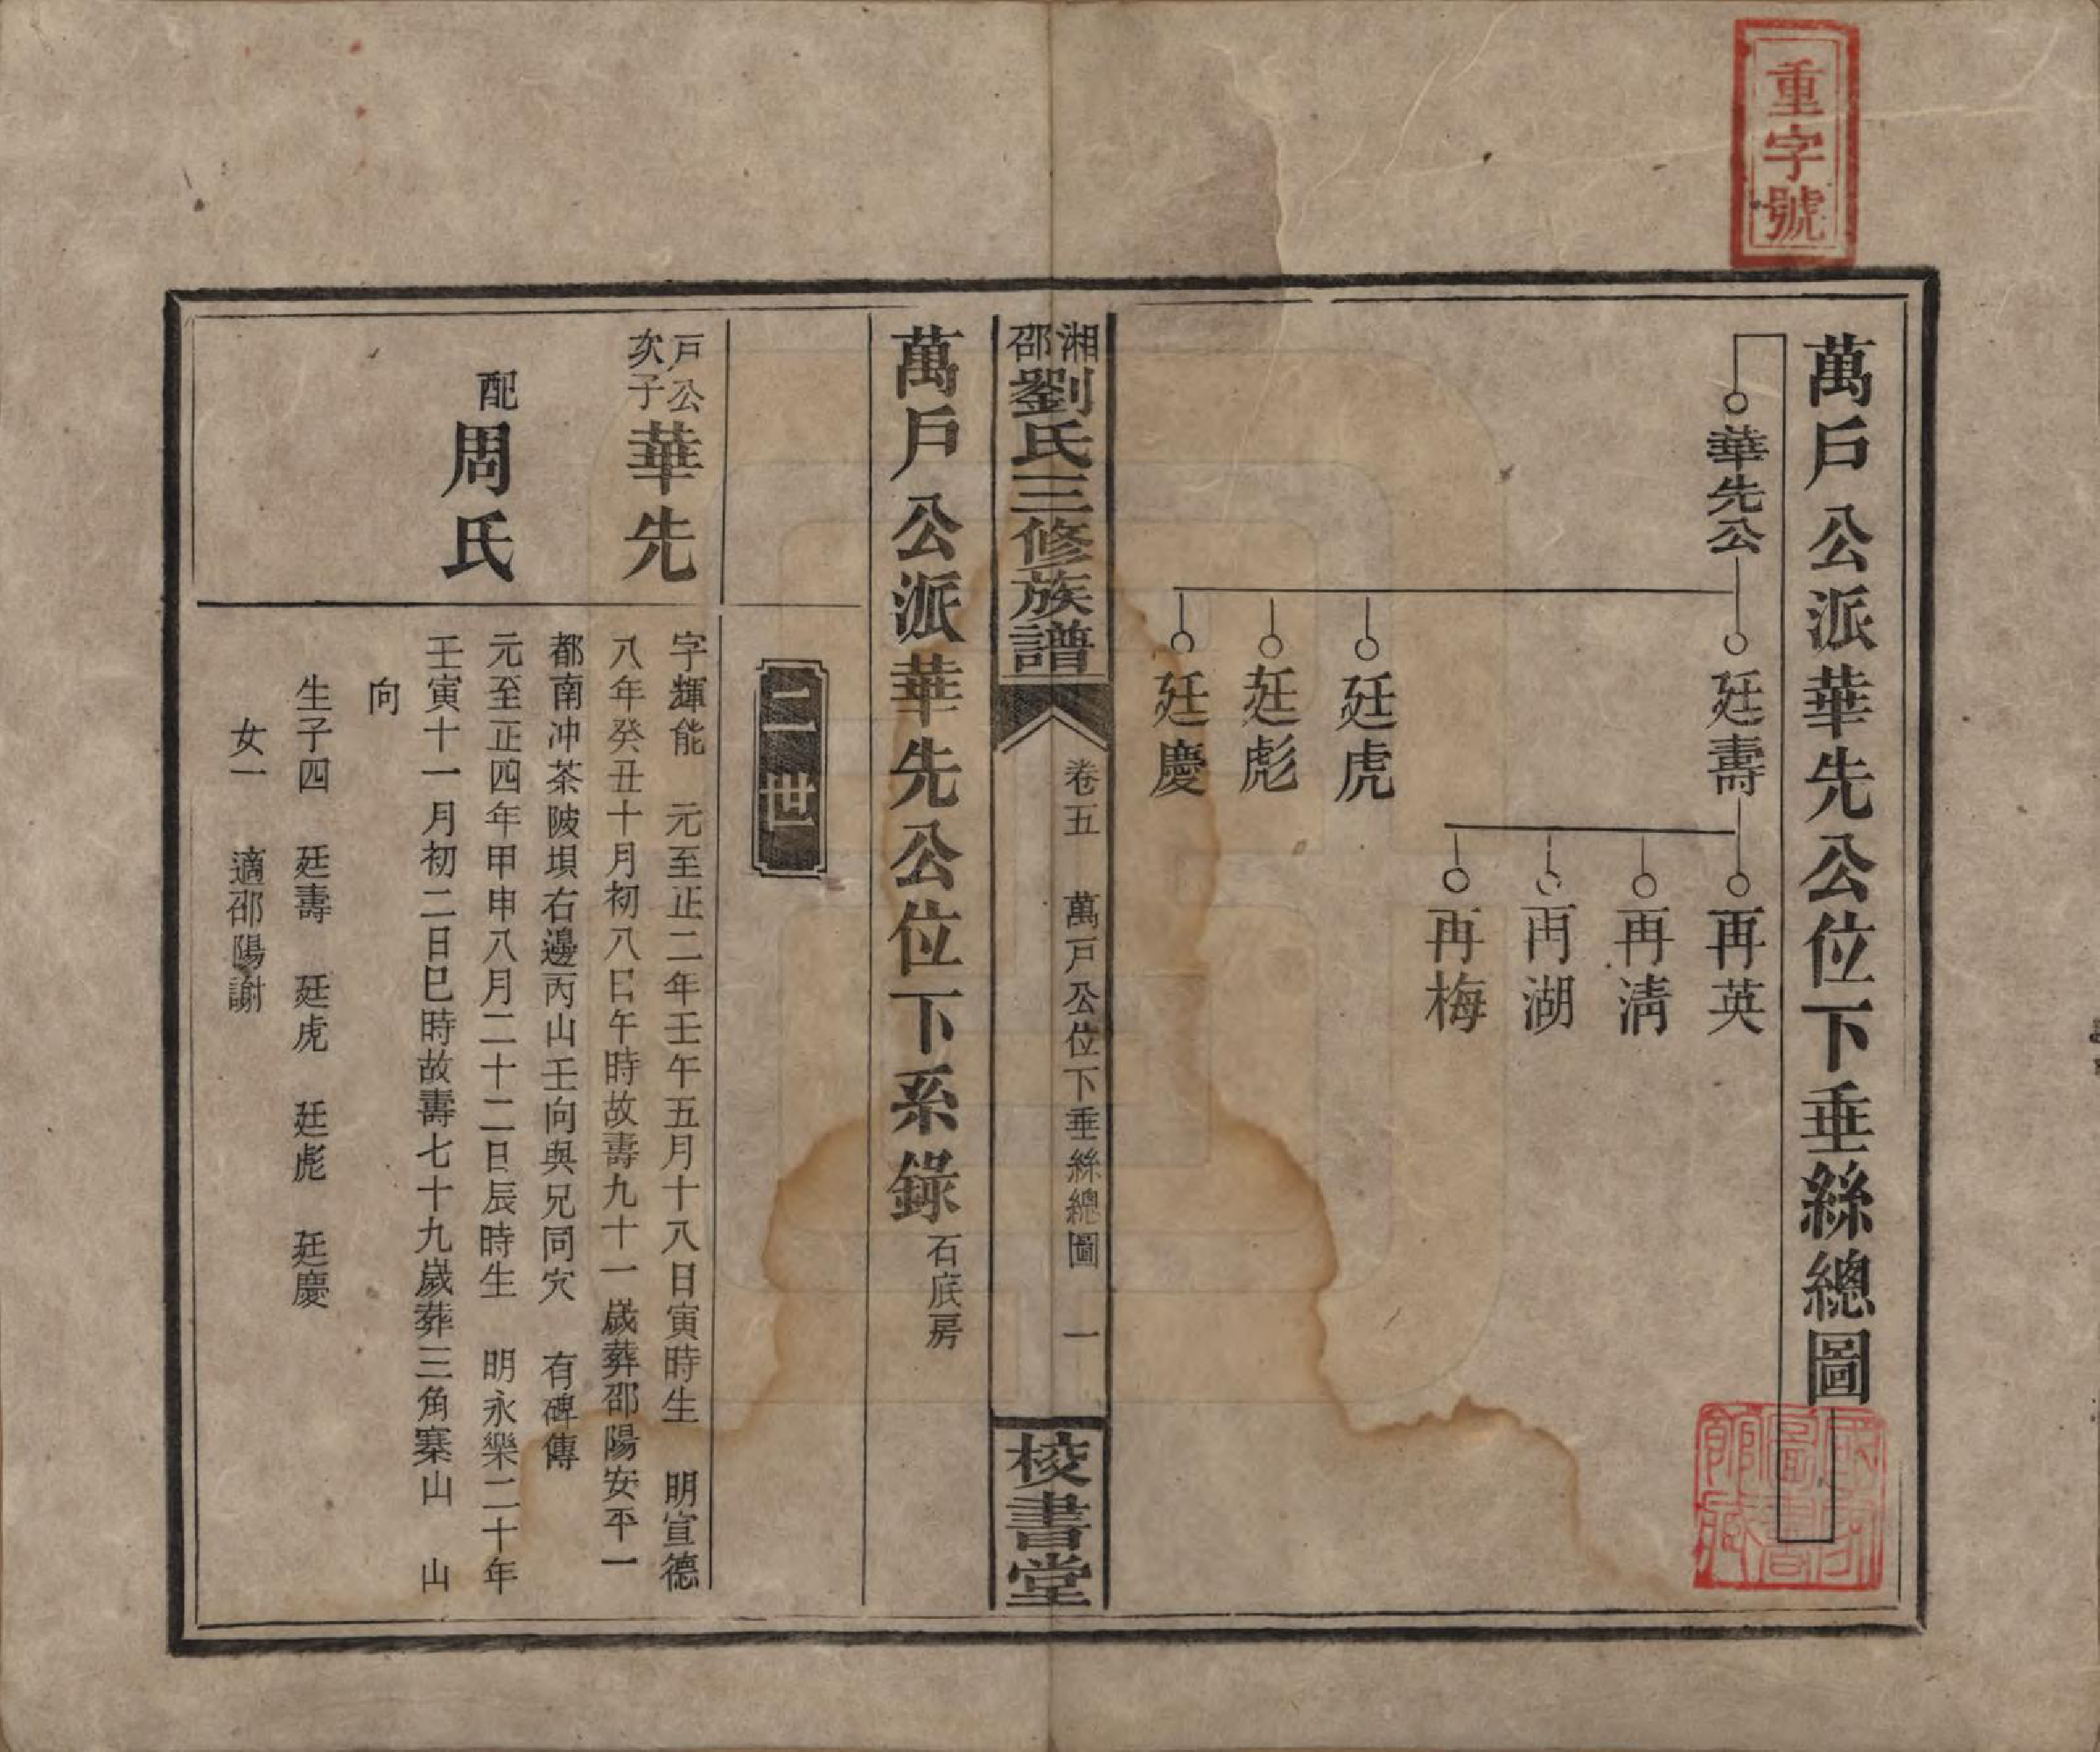 重字號
萬戶公派華先公位下垂絲總圖
華先公
廷壽
廷虎
廷彪
廷慶
再英
再清
再湖
再梅
國家圖書館藏
湘邵劉氏三修族譜
卷五 萬戶公位下垂絲總圖 一
校書堂
萬戶公派華先公位下系錄 石底房
二世
戶公次子 華先
字輝能 元至正二年壬午五月十八日寅時生 明宣德
八年癸丑十月初八日午時故壽九十一歲葬邵陽安平一
都南冲茶陂垻右邊丙山壬向與兄同穴 有碑傳
配 周氏
元至正四年甲申八月二十二日辰時生 明永樂二十年
壬寅十一月初二日巳時故壽七十九歲葬三角寨山 山
向
生子四 廷壽 廷虎 廷彪 廷慶
女一 適邵陽謝